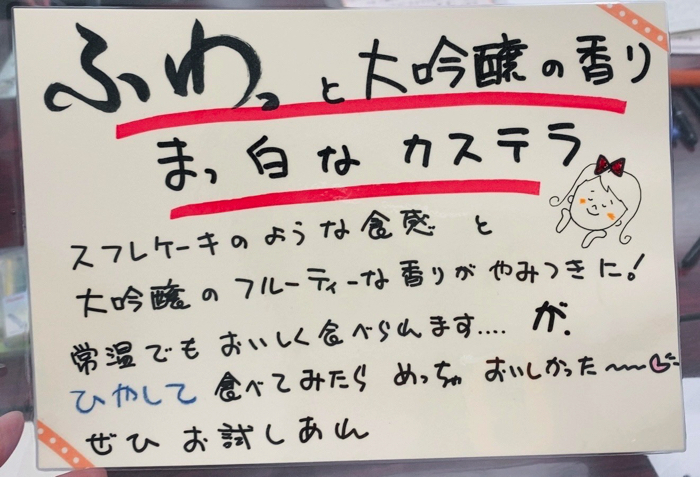 ふわっと大吟醸の香り
まっ白なカステラ
スフレケーキのような食感と
大吟醸のフルーティーな香りがやみつきに!
常温でもおいしく食べられます....が、
ひやして食べてみたらめっちゃおいしかった〜〜
ぜひお試しあれ